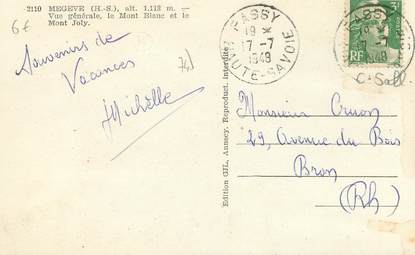 2110 MEGEVE (H.-S.), alt. 1.113 m. —
Vue générale, le Mont Blanc et le
Mont Joly.
6€
Souvenirs de
Vacances
Michèlle
Edition GIL, Annecy. Reproduct. interdite
PASSY
19 *
17-7
1949
HAUTE-SAVOIE
PASSY
1949
RF
Monsieur Cruon
29, Avenue du Bois
Bron
(Rh)